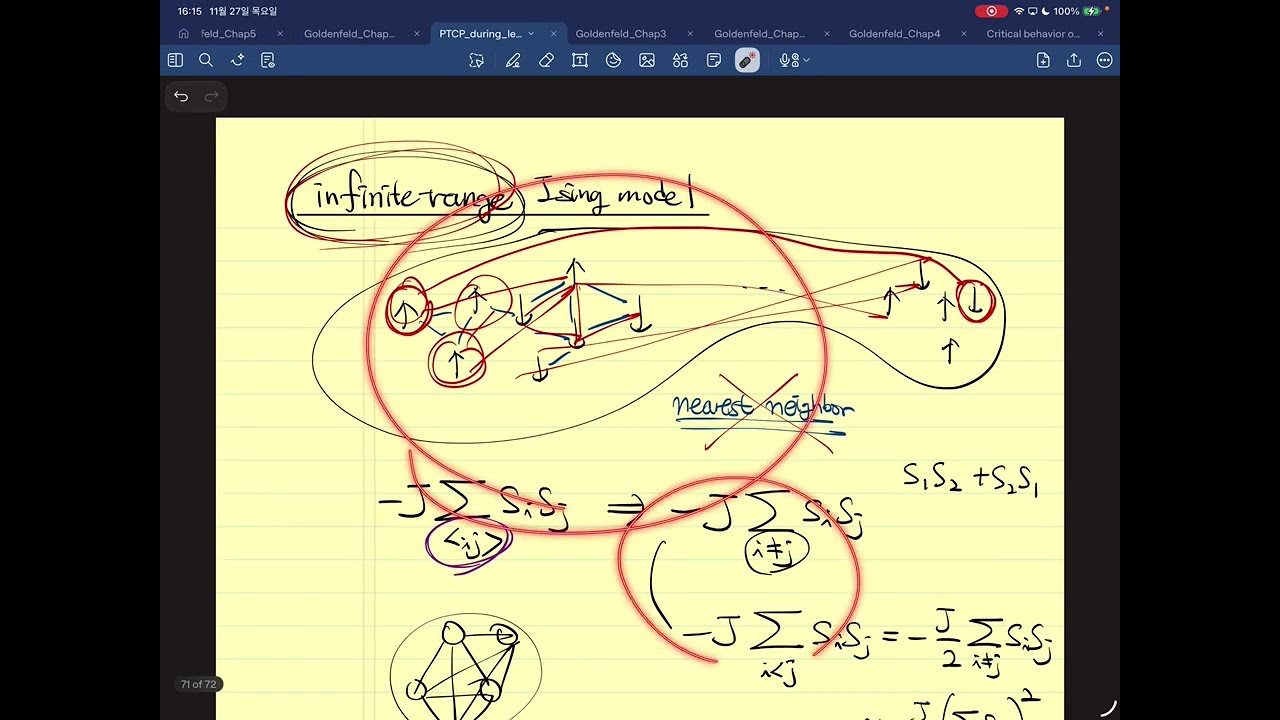 16:15 11월 27일 목요일 100%
feld_Chap5 Goldenfeld_Chap... PTCP_during_le... Goldenfeld_Chap3 Goldenfeld_Chap... Goldenfeld_Chap4 Critical behavior o...
infinite-range Ising model
nearest neighbor
S₁S₂ + S₂S₁
-J Σ SᵢSⱼ ⇒ -J Σ SᵢSⱼ
<ij> i≠j
-J Σ SᵢSⱼ = -J/2 Σ SᵢSⱼ
i<j i≠j
71 of 72